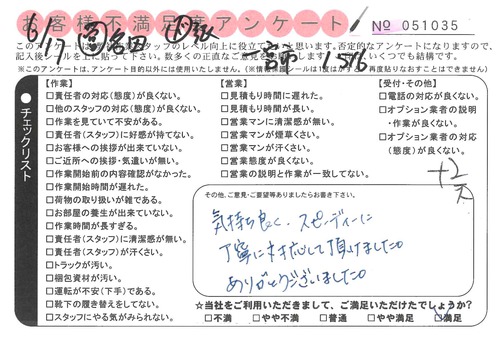 お客様不満足度アンケート
№ 051035
6/17
一宮市
1576
記入後シールを上に貼って下さい。数多くの正直なご意見をお聞
いくつでも結構です。
※このアンケートは、アンケート目的以外には使用いたしません。
チェックリスト
【作業】
□責任者の対応(態度)が良くない。
□他のスタッフの対応(態度)が良くない。
□作業を見ていて不安がある。
□責任者(スタッフ)に好感が持てない。
□お客様への挨拶が出来ていない。
□ご近所への挨拶・気遣いが無い。
□作業開始前の内容確認がなかった。
□作業開始時間が遅れた。
□荷物の取り扱いが雑である。
□お部屋の養生が出来ていない。
□作業時間が長すぎる。
□責任者(スタッフ)に清潔感が無い。
□責任者(スタッフ)が汗くさい。
□トラックが汚い。
□梱包資材が汚い。
□運転が不安(下手)である。
□靴下の履き替えをしてない。
□スタッフにやる気がみられない。
【営業】
□見積もり時間に遅れた。
□見積もり時間が長い。
□営業マンに清潔感が無い。
□営業マンが煙草くさい。
□営業マンが汗くさい。
□営業態度が良くない。
□営業の説明と作業が一致してない。
【受付・その他】
□電話の対応が良くない。
□オプション業者の説明
・作業が良くない。
□オプション業者の対応
(態度)が良くない。
+2点
その他、ご意見・ご要望等ありましたらお書き下さい。
気持ち良く、スピーディーに
丁寧に対応して頂けました。
ありがとうございました。
☆当社をご利用いただきまして、ご満足いただけたでしょうか?
□不満 □やや不満 □普通 □やや満足 □満足